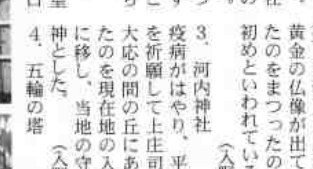 黄金の仏像が出て
たのをまつったの
初めといわれている
3、河内神社
疫病がはやり、平
を祈願して上庄司
大応の間の丘にあ
たのを現在地の入
に移し、当地の守
神とした。
4、五輪の塔